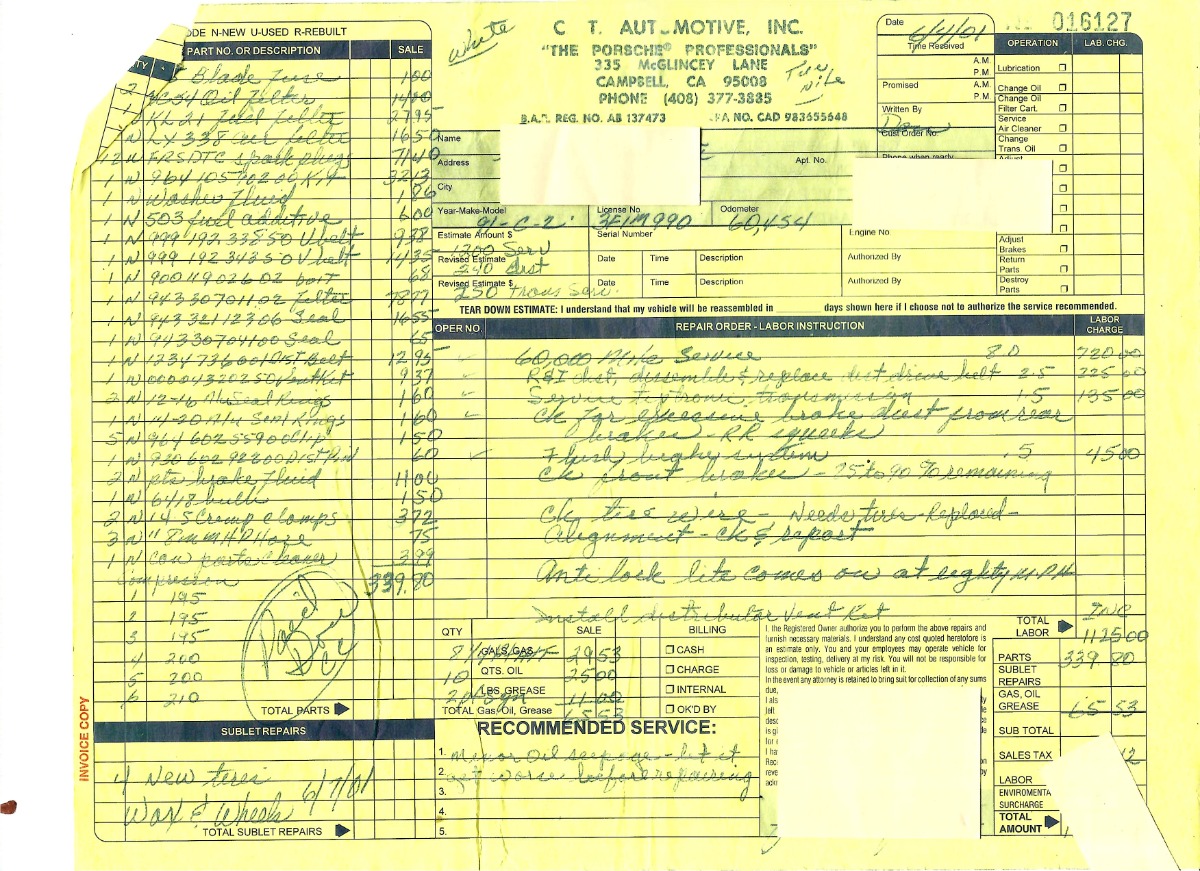 CODE N-NEW U-USED R-REBUILT
PART NO. OR DESCRIPTION SALE
Blade Fuse 1.00
Oil filter 14.00
KL21 fuel filter 27.95
LX338 air filter 16.50
12 N FR5DTC spark plugs 71.40
1 N 964 105 902 00 Kit 32.13
1 N Washer Fluid 1.86
1 N 503 fuel additive 6.00
1 N 999 192 338 50 V belt 9.38
1 N 999 192 343 50 V belt 14.35
1 N 900 119 026 02 bolt 68
1 N 943 307 011 02 filter 78.77
1 N 943 321 123 06 Seal 16.55
1 N 943 307 041 00 Seal 65
1 N 123 473 6001 Dist belt 12.95
1 N 000 043 202 50 Vent Ket 9.37
2 N 12-16 Alu Seal Rings 1.60
1 N 14-20 Alu Seal Rings 1.60
5 N 964 602 559 00 Clip 1.50
1 N 930 602 922 00 Dist Pin 60
2 N pts brake fluid 11.00
1 N 6418 bulb 1.50
2 N 14 5 Crimp Clamps 3.72
3 N " 8mm HP Hose 75
1 N can parts cleaner 3.99
Compression 339.80
1 195
2 195
3 195
4 200
5 200
6 210
TOTAL PARTS
INVOICE COPY
SUBLET REPAIRS
4 New tires
Wax & Wheels 6/7/01
TOTAL SUBLET REPAIRS
White
C T. AUT MOTIVE, INC.
"THE PORSCHE® PROFESSIONALS"
335 McGLINCEY LANE
CAMPBELL, CA 95008
PHONE (408) 377-3885
B.A.R. REG. NO. AB 137473 PA NO. CAD 983655648
Date 6/4/01
016127
Time Received A.M. P.M.
Promised A.M. P.M.
Written By
Cust Order No.
Phone when ready
OPERATION LAB. CHG.
Lubrication
Change Oil
Change Oil Filter Cart.
Service Air Cleaner
Change Trans. Oil
Adjust
Adjust Brakes
Return Parts
Destroy Parts
Name
Address Apt. No.
City
Year-Make-Model 91-C-2 License No 3FIM990 Odometer 60,454
Estimate Amount $ 1200 Serv Serial Number Engine No.
Revised Estimate 290 dist Date Time Description Authorized By
Revised Estimate $ 250 Trans Serv. Date Time Description Authorized By
TEAR DOWN ESTIMATE: I understand that my vehicle will be reassembled in days shown here if I choose not to authorize the service recommended.
OPER NO. REPAIR ORDER - LABOR INSTRUCTION LABOR CHARGE
60,000 Mile Service 8.0 720.00
R&I dist, dissemble & replace dist drive belt 2.5 225.00
Service Tiptronic transmission 1.5 135.00
Ck for excessive brake dust from rear
brakes - RR squeeks
Flush brake system .5 45.00
Ck front brakes - 75 to 90 % remaining
Ck tire wire - Needs tires Replaced -
Alignment - Ck & report
Anti lock lite comes on at eighty M.P.H
Install distributor Vent Ket INC
QTY SALE BILLING
GALS. GAS 29.53 CASH
10 QTS. OIL 25.00 CHARGE
LBS. GREASE 11.00 INTERNAL
TOTAL Gas, Oil, Grease 65.53 OK'D BY
RECOMMENDED SERVICE:
1. Minor Oil seepage - let it
2. get worse before repairing
3.
4.
5.
I, the Registered Owner authorize you to perform the above repairs and
furnish necessary materials. I understand any cost quoted heretofore is
an estimate only. You and your employees may operate vehicle for
inspection, testing, delivery at my risk. You will not be responsible for
loss or damage to vehicle or articles left in it.
In the event any attorney is retained to bring suit for collection of any sums
due,
TOTAL LABOR 1125.00
PARTS 339.80
SUBLET REPAIRS
GAS, OIL GREASE 65.53
SUB TOTAL
SALES TAX
LABOR
ENVIROMENTA SURCHARGE
TOTAL AMOUNT